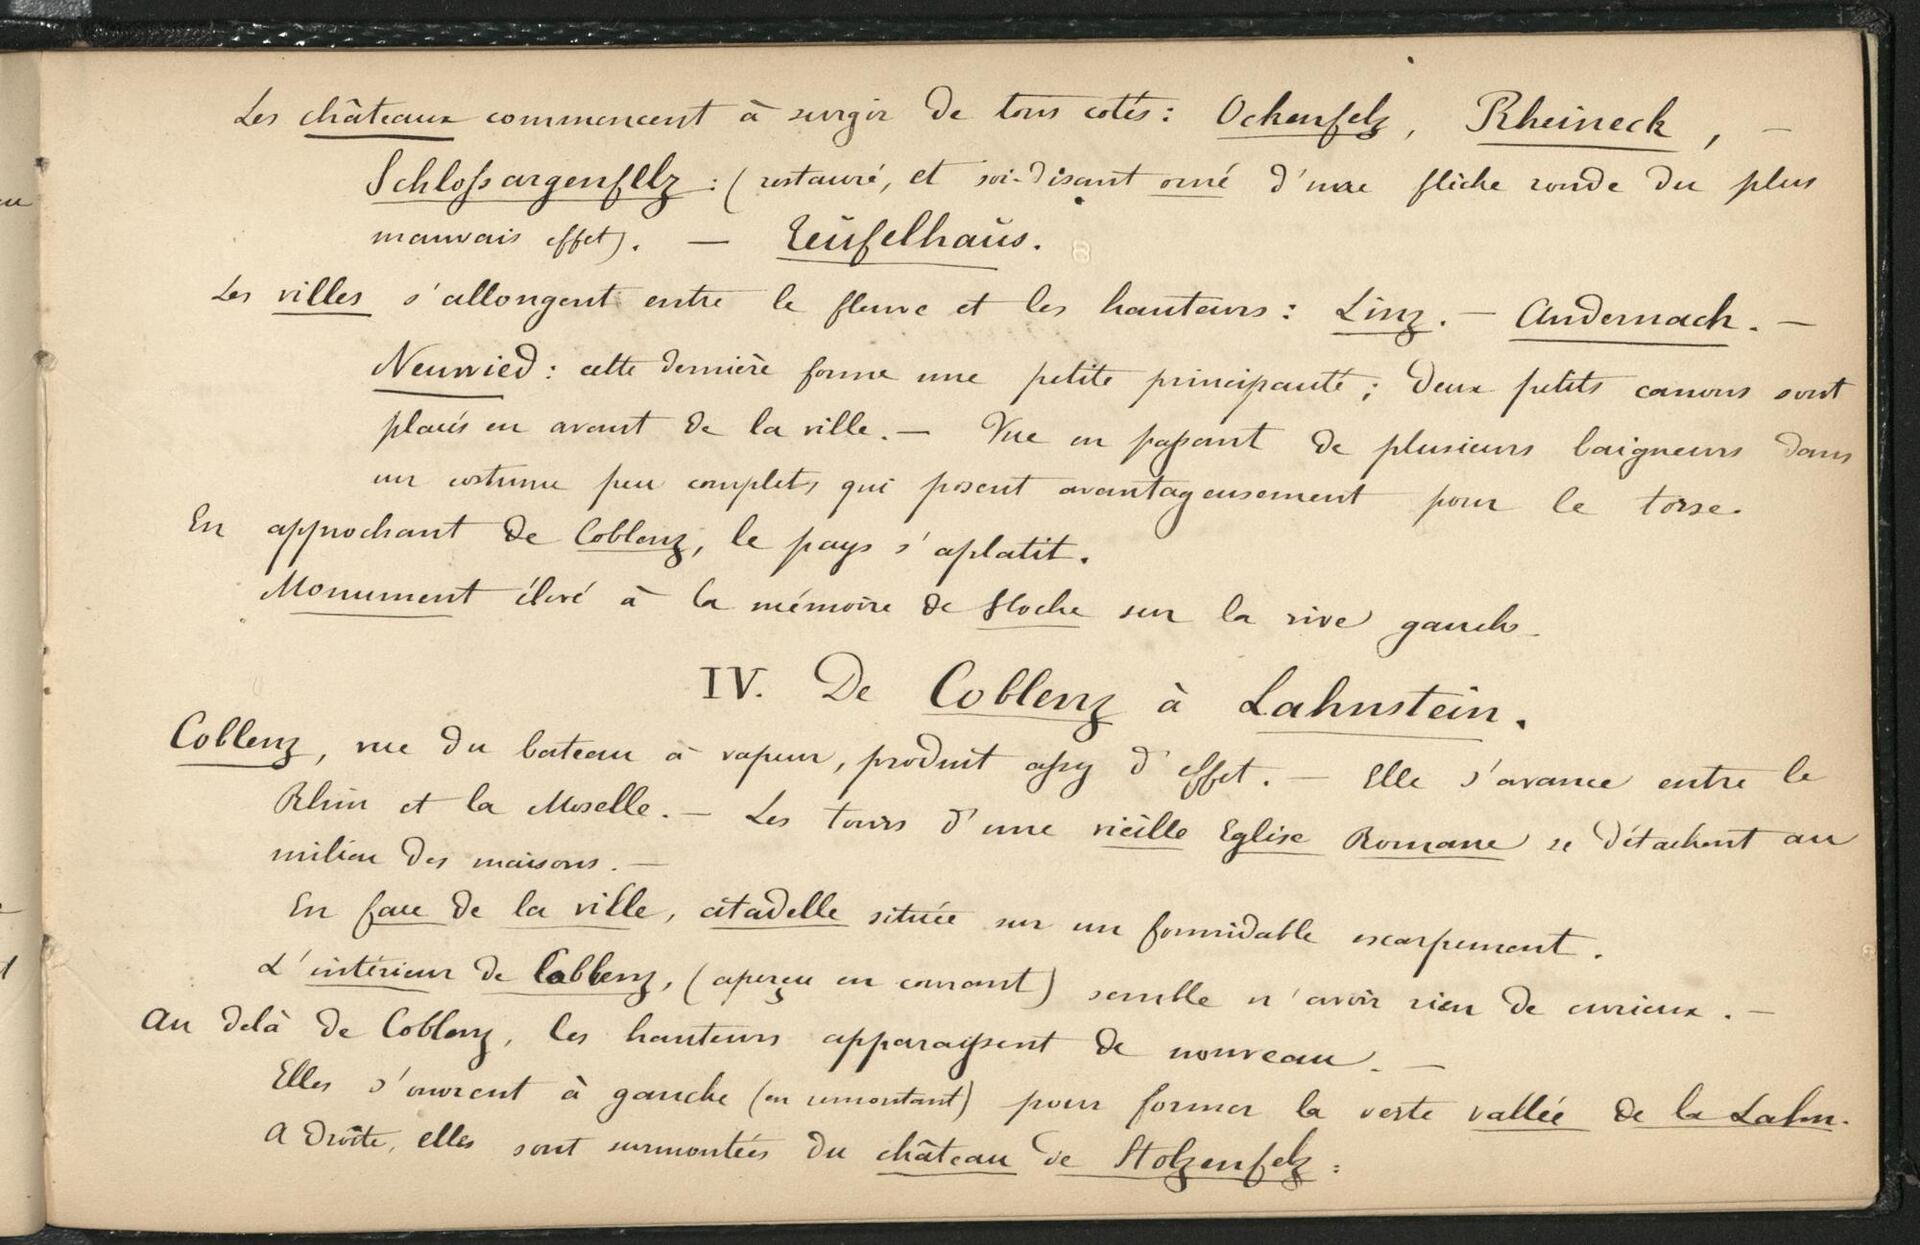 Les châteaux commencent à surgir de tous cotés : Ockenfelz, Rheineck, —
Schloſsargenfelz : (restauré, et soi-disant orné d'une flèche ronde du plus
mauvais effet). — Teüfelhaüs.
Les villes s'allongent entre le fleuve et les hauteurs : Linz. — Andernach. —
Neuwied : cette dernière forme une petite principauté ; deux petits canons sont
placés en avant de la ville. — Vue en paſsant de plusieurs baigneurs dans
un costume peu complets, qui posent avantageusement pour le torse.
En approchant de Coblenz, le pays s'aplatit.
Monument élevé à la mémoire de Hoche sur la rive gauche.
IV. De Coblenz à Lahnstein.
Coblenz, vue du bateau à vapeur, produit aſsez d'effet. — Elle s'avance entre le
Rhin et la Moselle. — Les tours d'une vieille Eglise Romane se détachent au
milieu des maisons. —
En face de la ville, citadelle située sur un formidable escarpement.
L'intérieur de Coblenz, (aperçu en courant) semble n'avoir rien de curieux. —
Au delà de Coblenz, les hauteurs apparaiſsent de nouveau. —
Elles s'ouvrent à gauche (en remontant) pour former la verte vallée de la Lahn.
A droite, elles sont surmontées du château de Stolzenfelz :